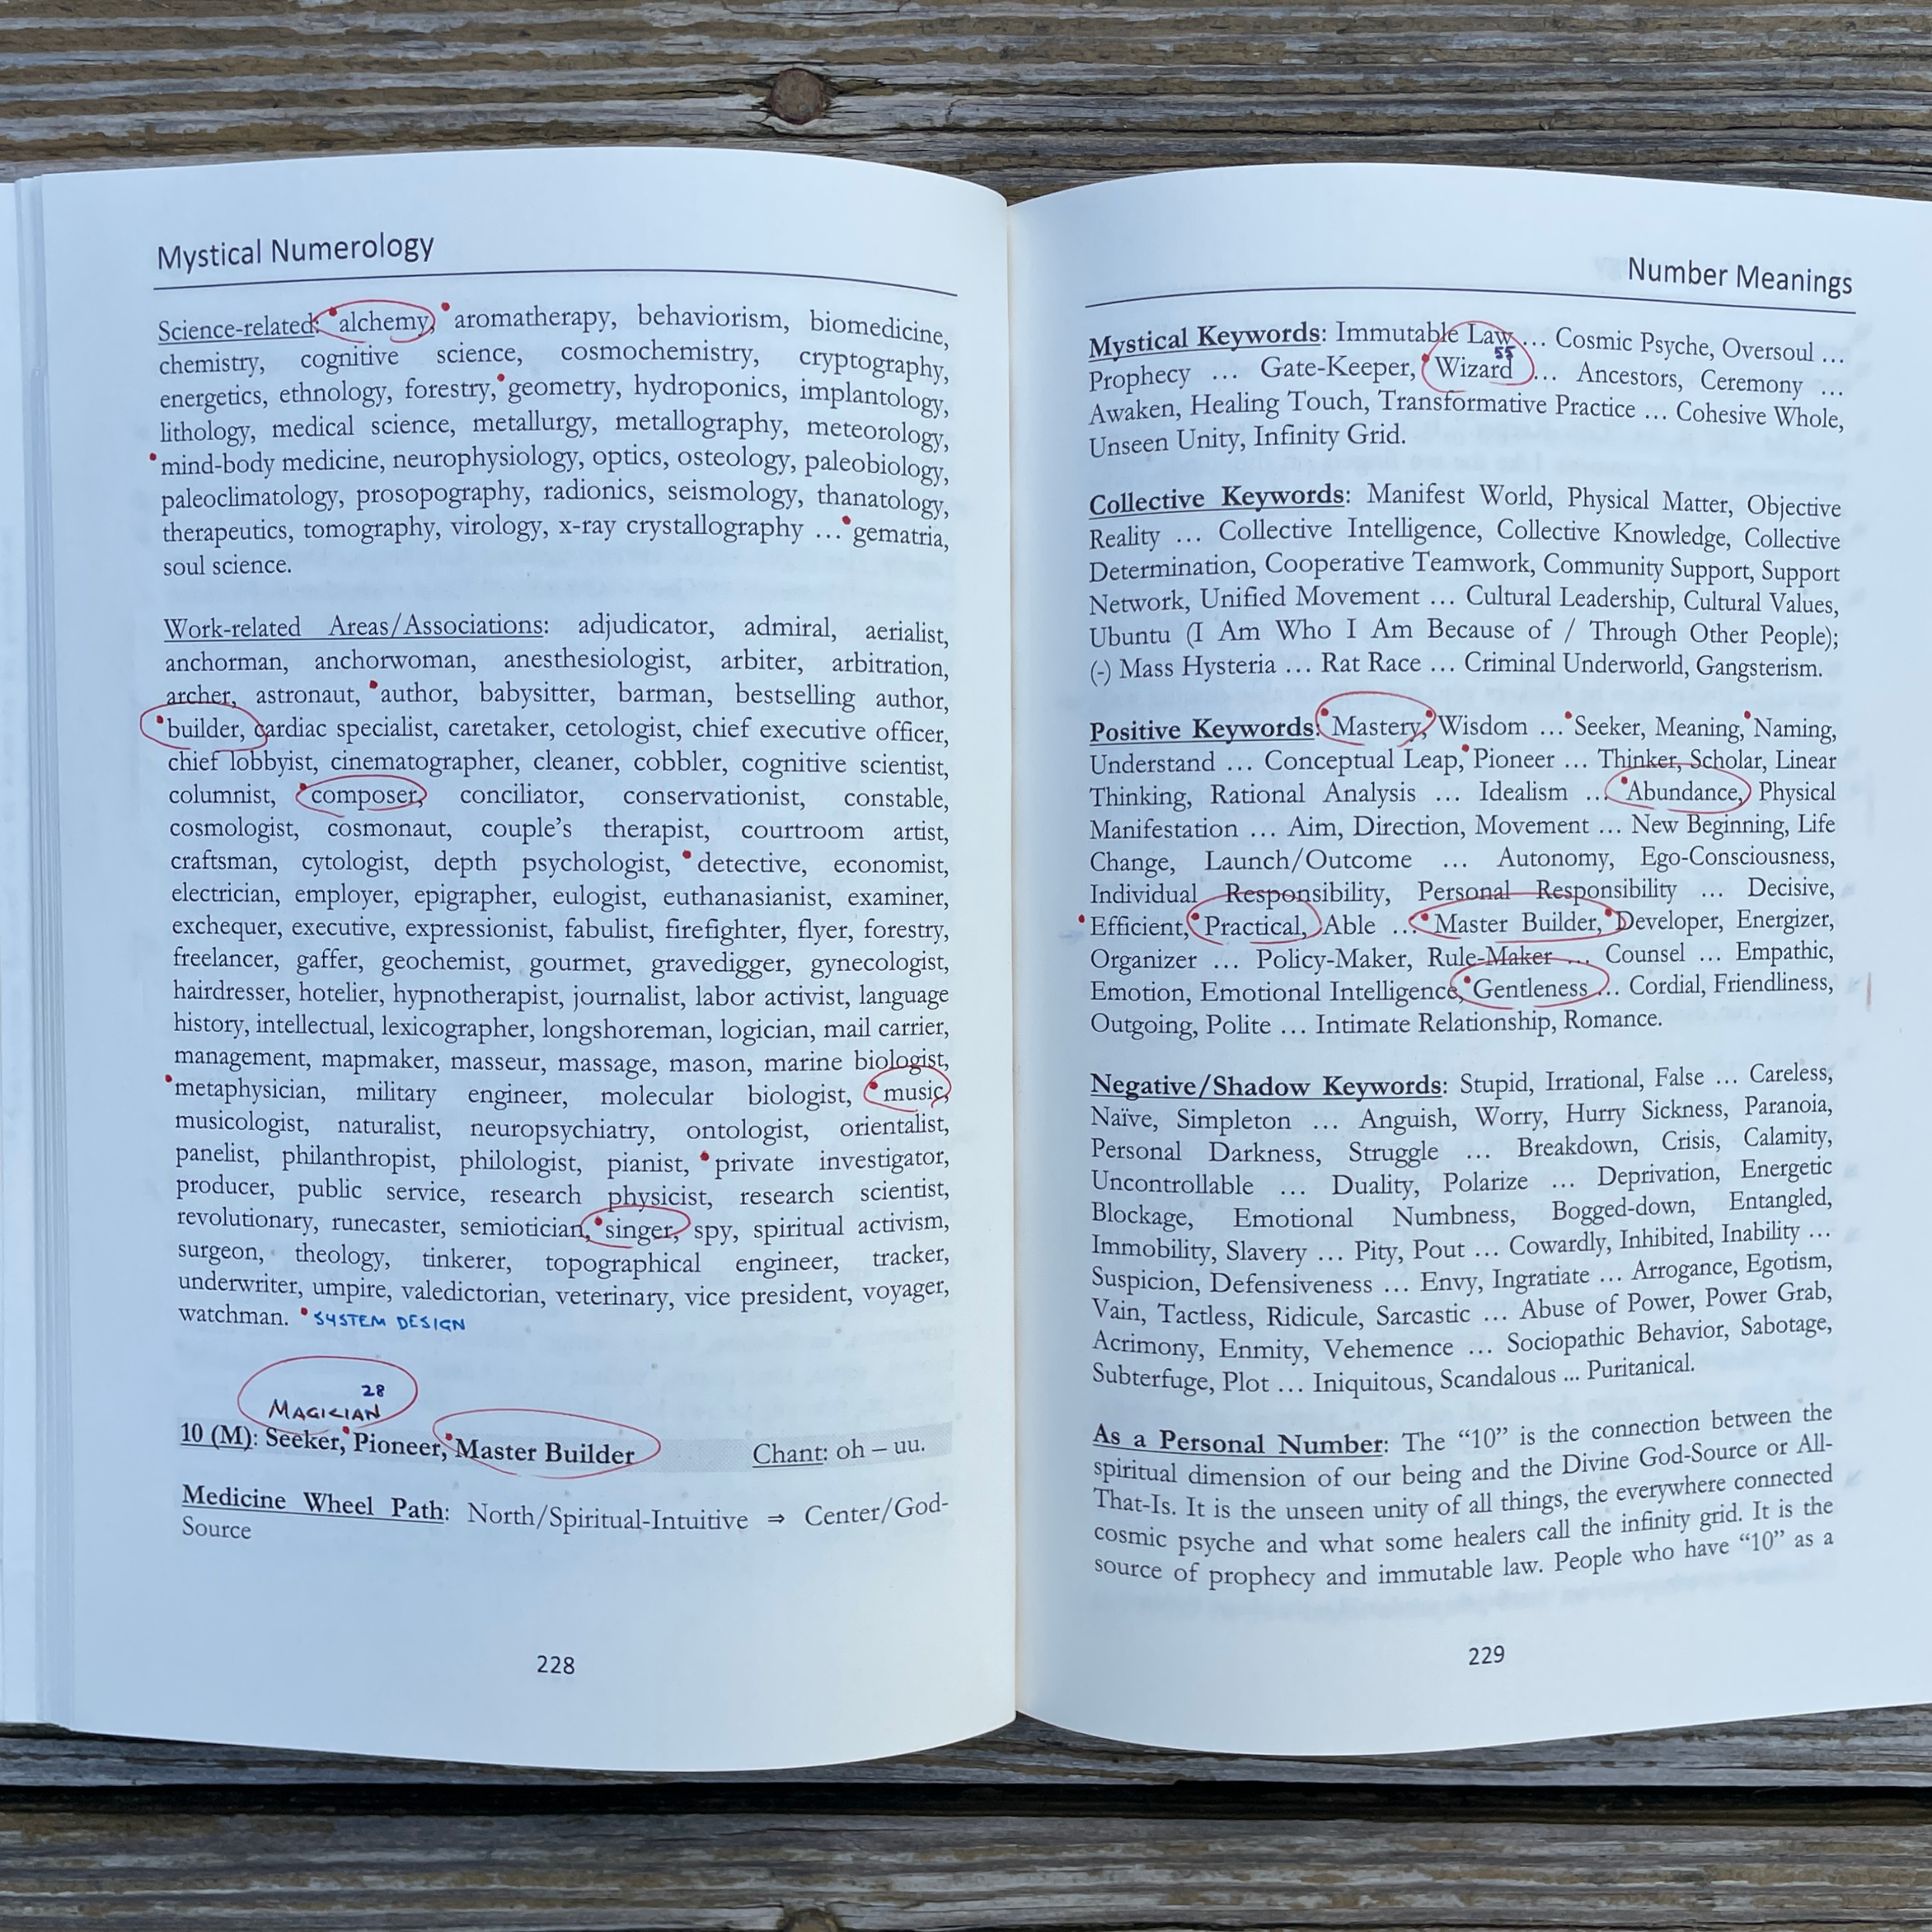 Mystical Numerology
Science-related: alchemy, aromatherapy, behaviorism, biomedicine,
chemistry, cognitive science, cosmochemistry, cryptography,
energetics, ethnology, forestry, geometry, hydroponics, implantology,
lithology, medical science, metallurgy, metallography, meteorology,
mind-body medicine, neurophysiology, optics, osteology, paleobiology,
paleoclimatology, prosopography, radionics, seismology, thanatology,
therapeutics, tomography, virology, x-ray crystallography … gematria,
soul science.
Work-related Areas/Associations: adjudicator, admiral, aerialist,
anchorman, anchorwoman, anesthesiologist, arbiter, arbitration,
archer, astronaut, author, babysitter, barman, bestselling author,
builder, cardiac specialist, caretaker, cetologist, chief executive officer,
chief lobbyist, cinematographer, cleaner, cobbler, cognitive scientist,
columnist, composer, conciliator, conservationist, constable,
cosmologist, cosmonaut, couple's therapist, courtroom artist,
craftsman, cytologist, depth psychologist, detective, economist,
electrician, employer, epigrapher, eulogist, euthanasianist, examiner,
exchequer, executive, expressionist, fabulist, firefighter, flyer, forestry,
freelancer, gaffer, geochemist, gourmet, gravedigger, gynecologist,
hairdresser, hotelier, hypnotherapist, journalist, labor activist, language
history, intellectual, lexicographer, longshoreman, logician, mail carrier,
management, mapmaker, masseur, massage, mason, marine biologist,
metaphysician, military engineer, molecular biologist, music,
musicologist, naturalist, neuropsychiatry, ontologist, orientalist,
panelist, philanthropist, philologist, pianist, private investigator,
producer, public service, research physicist, research scientist,
revolutionary, runecaster, semiotician, singer, spy, spiritual activism,
surgeon, theology, tinkerer, topographical engineer, tracker,
underwriter, umpire, valedictorian, veterinary, vice president, voyager,
watchman. SYSTEM DESIGN
28
MAGICIAN
10 (M): Seeker, Pioneer, Master Builder Chant: oh – uu.
Medicine Wheel Path: North/Spiritual-Intuitive ⇒ Center/God-
Source
228
Number Meanings
Mystical Keywords: Immutable Law … Cosmic Psyche, Oversoul …
55
Prophecy … Gate-Keeper, Wizard … Ancestors, Ceremony …
Awaken, Healing Touch, Transformative Practice … Cohesive Whole,
Unseen Unity, Infinity Grid.
Collective Keywords: Manifest World, Physical Matter, Objective
Reality … Collective Intelligence, Collective Knowledge, Collective
Determination, Cooperative Teamwork, Community Support, Support
Network, Unified Movement … Cultural Leadership, Cultural Values,
Ubuntu (I Am Who I Am Because of / Through Other People);
(-) Mass Hysteria … Rat Race … Criminal Underworld, Gangsterism.
Positive Keywords: Mastery, Wisdom … Seeker, Meaning, Naming,
Understand … Conceptual Leap, Pioneer … Thinker, Scholar, Linear
Thinking, Rational Analysis … Idealism … Abundance, Physical
Manifestation … Aim, Direction, Movement … New Beginning, Life
Change, Launch/Outcome … Autonomy, Ego-Consciousness,
Individual Responsibility, Personal Responsibility … Decisive,
Efficient, Practical, Able … Master Builder, Developer, Energizer,
Organizer … Policy-Maker, Rule-Maker … Counsel … Empathic,
Emotion, Emotional Intelligence, Gentleness … Cordial, Friendliness,
Outgoing, Polite … Intimate Relationship, Romance.
Negative/Shadow Keywords: Stupid, Irrational, False … Careless,
Naïve, Simpleton … Anguish, Worry, Hurry Sickness, Paranoia,
Personal Darkness, Struggle … Breakdown, Crisis, Calamity,
Uncontrollable … Duality, Polarize … Deprivation, Energetic
Blockage, Emotional Numbness, Bogged-down, Entangled,
Immobility, Slavery … Pity, Pout … Cowardly, Inhibited, Inability …
Suspicion, Defensiveness … Envy, Ingratiate … Arrogance, Egotism,
Vain, Tactless, Ridicule, Sarcastic … Abuse of Power, Power Grab,
Acrimony, Enmity, Vehemence … Sociopathic Behavior, Sabotage,
Subterfuge, Plot … Iniquitous, Scandalous ... Puritanical.
As a Personal Number: The “10” is the connection between the
spiritual dimension of our being and the Divine God-Source or All-
That-Is. It is the unseen unity of all things, the everywhere connected
cosmic psyche and what some healers call the infinity grid. It is the
source of prophecy and immutable law. People who have “10” as a
229